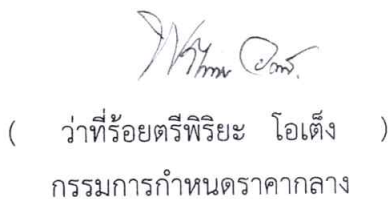 ( ว่าที่ร้อยตรีพิริยะ โอเต็ง )
กรรมการกำหนดราคากลาง